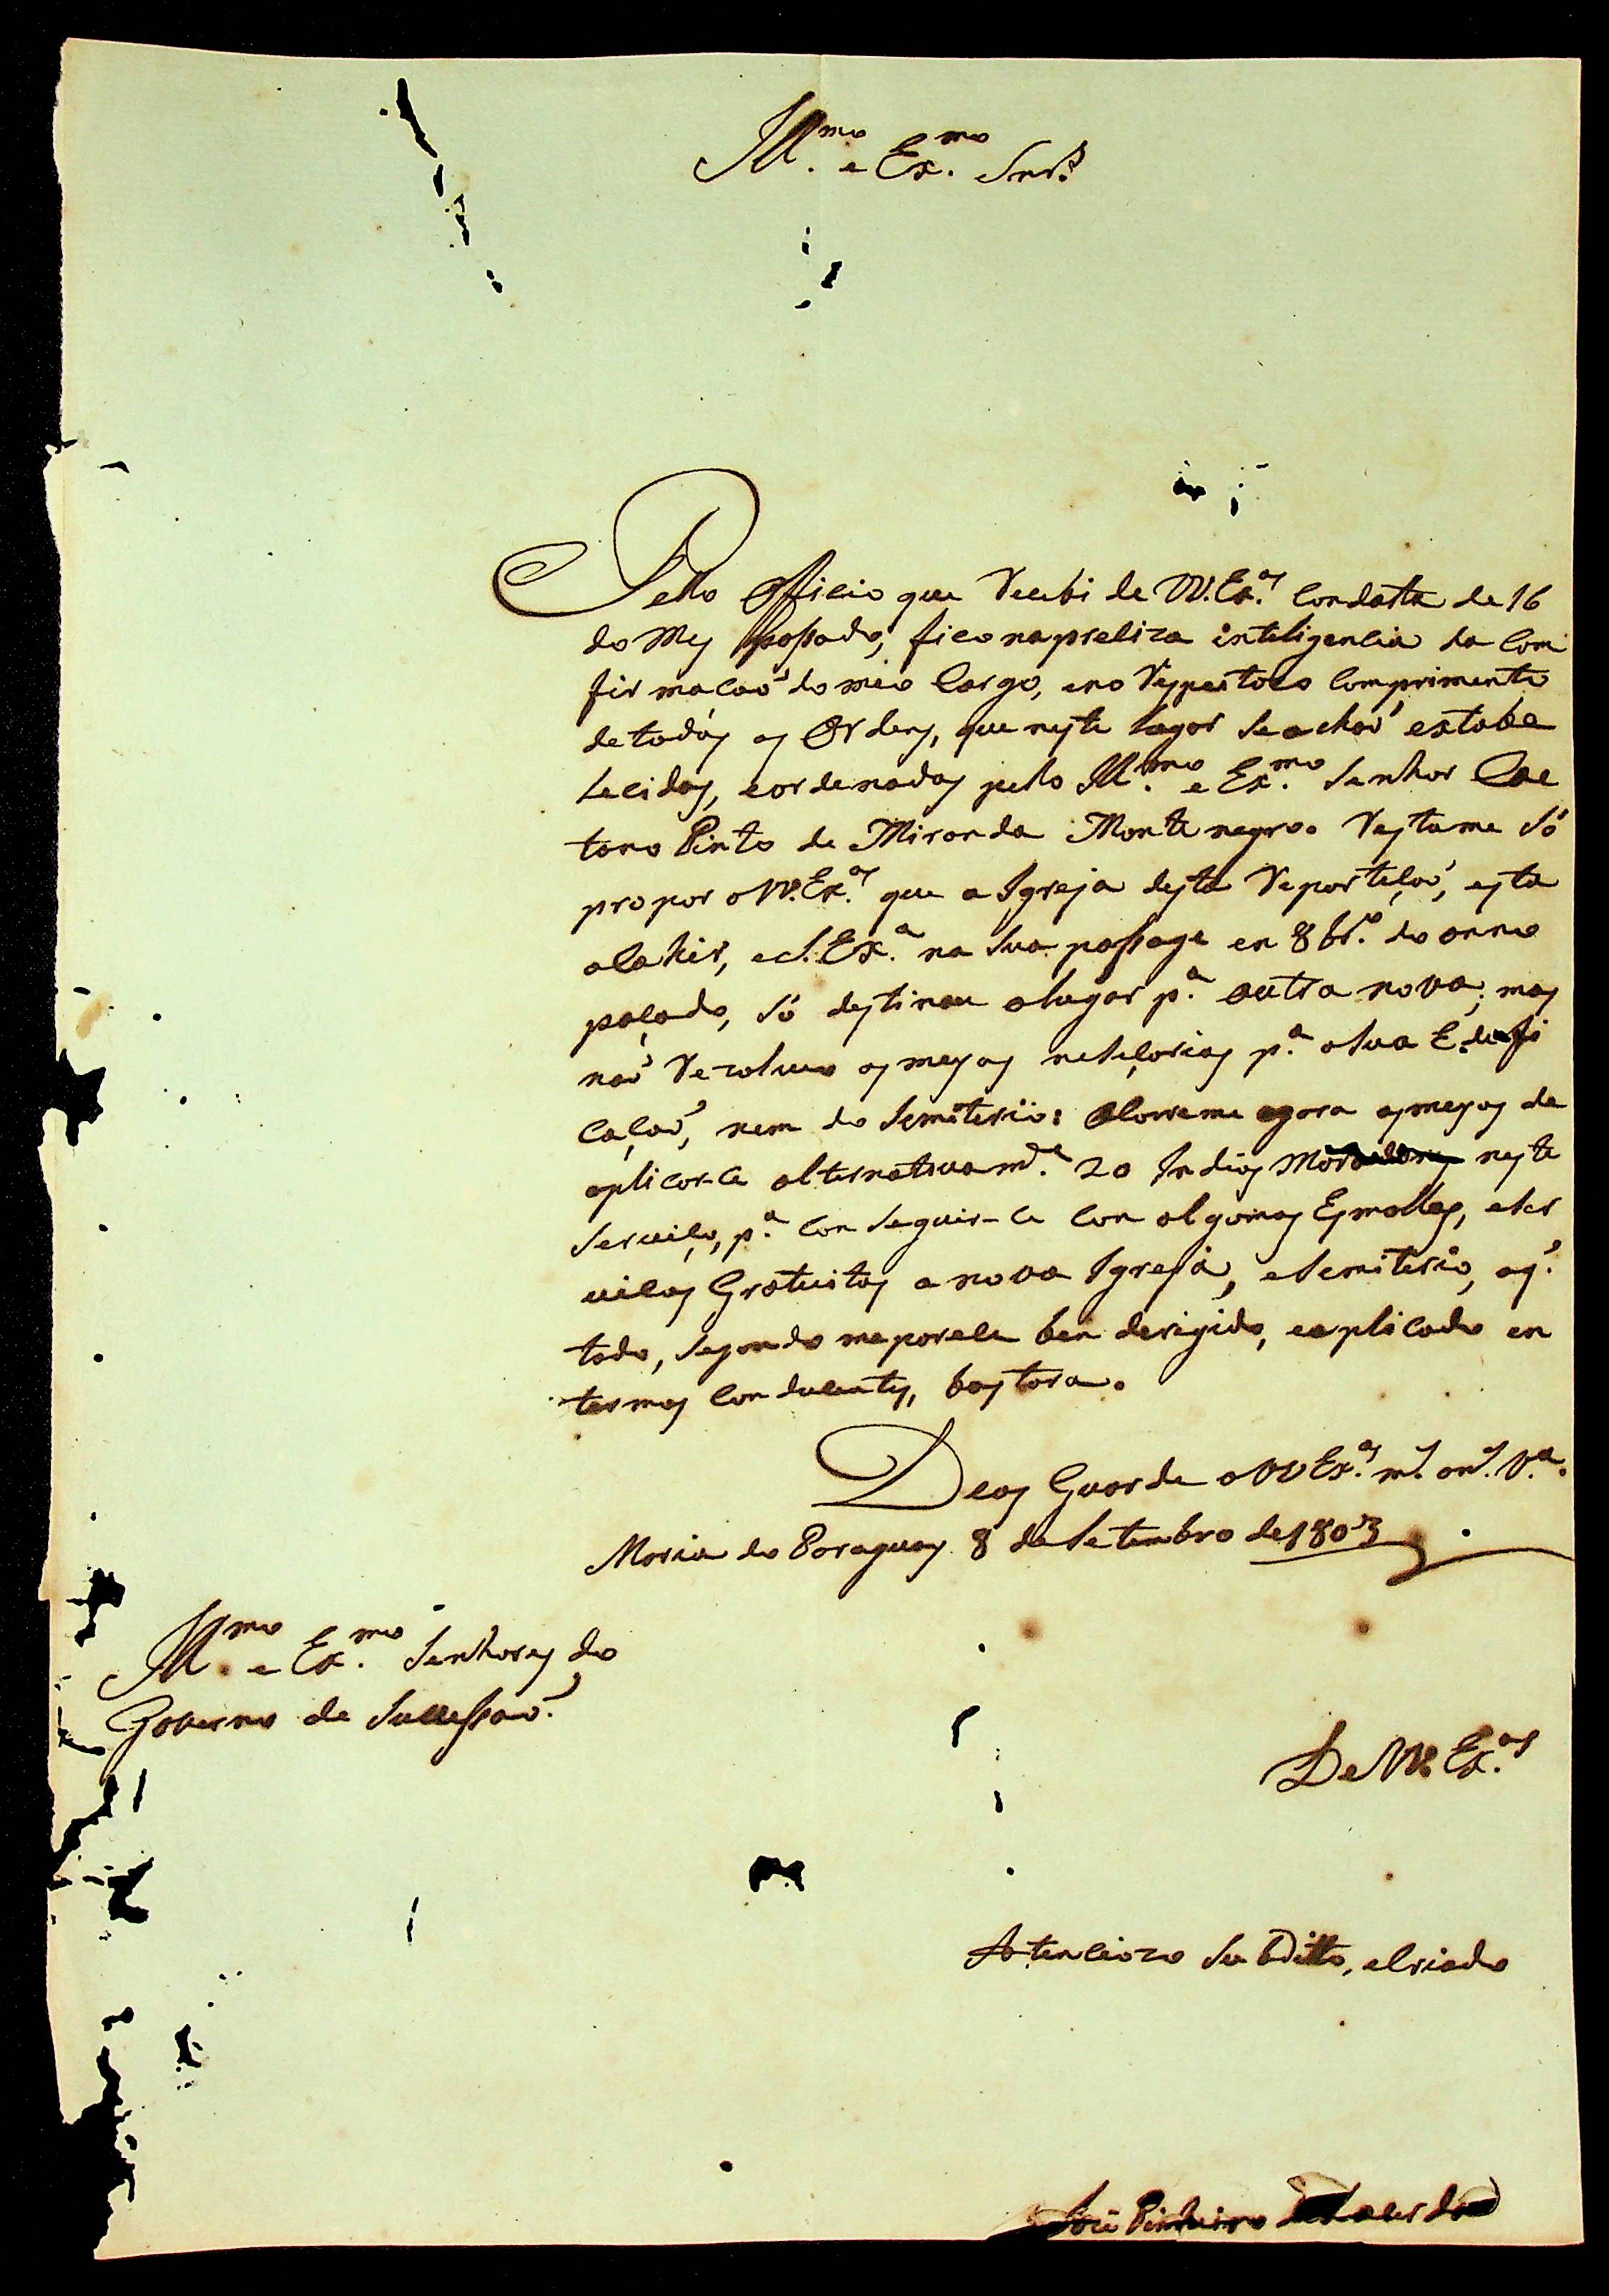 Ill.mo e Ex.mo Snr.es
Pello Officio que Recebi de VV. Ex.as Con data de 16
do Mes passado, fico na preciza inteligencia da Con
firmacaó do meo Cargo, e no Respeitozo Comprimento
de todas as Ordens, que neste Lugar se achaó estabe
lecidas, e ordenadas pello Ill.mo e Ex.mo Senhor Cae
tano Pinto de Miranda Montenegro. Restame só
propor a VV. Ex.as que a Igreja desta Reparteçaó, esta
a Cahir, e S. Ex.a na sua passage en 8br.o do anno
paçado, só destinou o lugar p.a outra nova; mas
naó Rezolveo os meyos neseçarios p.a a sua Edefi
caçaó, nem do Semiterio: Ocorreme agora os meyos de
aplicar-ce alternativam.te 20 Indios Moradores neste
Serviço, p.a Conseguir-ce Con algumas Esmollas, e Ser
viços Gratuitos a nova Igreja, e Semiterio, o q.'
todo, Segundo me parece ben derigido, e aplicado en
termos Conducentes, bastara.
Deos Guarde a VV Ex.as m.s an.s V.a
Maria do Paraguay 8 de Setembro de 1803
Ill.mo e Ex.mo Senhores do
Governo de Sucessaó.
De VV. Ex.as
Atenciozo Subditto, e Criado
José Pinheiro de Lacerda